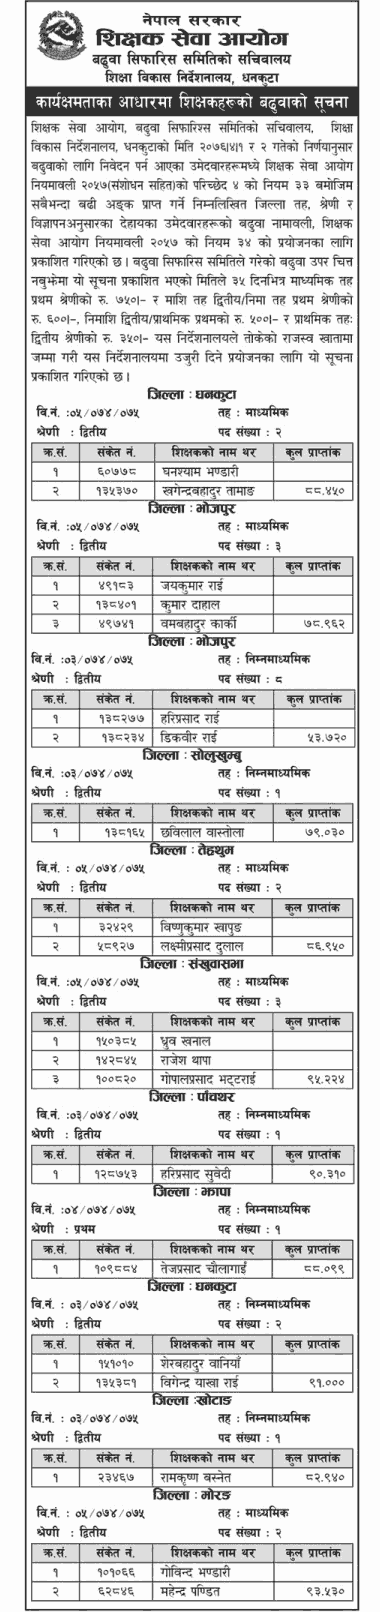 नेपाल सरकार
शिक्षक सेवा आयोग
बढुवा सिफारिस समितिको सचिवालय
शिक्षा विकास निर्देशनालय, धनकुटा
कार्यक्षमताका आधारमा शिक्षकहरूको बढुवाको सूचना
शिक्षक सेवा आयोग, बढुवा सिफारिश्स समितिको सचिवालय, शिक्षा
विकास निर्देशनालय, धनकुटाको मिति २०७६।४।१ र २ गतेको निर्णयानुसार
बढुवाको लागि निवेदन पर्न आएका उमेदवारहरूमध्ये शिक्षक सेवा आयोग
नियमावली २०५७(संशोधन सहित)को परिच्छेद ४ को नियम ३३ बमोजिम
सबैभन्दा बढी अङ्क प्राप्त गर्ने निम्नलिखित जिल्ला तह, श्रेणी र
विज्ञापनअनुसारका देहायका उमेदवारहरूको बढुवा नामावली, शिक्षक
सेवा आयोग नियमावली २०५७ को नियम ३४ को प्रयोजनका लागि
प्रकाशित गरिएको छ । बढुवा सिफारिस समितिले गरेको बढुवा उपर चित्त
नबुझेमा यो सूचना प्रकाशित भएको मितिले ३५ दिनभित्र माध्यमिक तह
प्रथम श्रेणीको रु. ७५०।– र माशि तह द्वितीय/निमा तह प्रथम श्रेणीको
रु. ६००।–, निमाशि द्वितीय/प्राथमिक प्रथमको रु. ५००।– र प्राथमिक तहः
द्वितीय श्रेणीको रु. ३५०।– यस निर्देशनालयले तोकेको राजस्व खातामा
जम्मा गरी यस निर्देशनालयमा उजुरी दिने प्रयोजनका लागि यो सूचना
प्रकाशित गरिएको छ ।
जिल्ला : धनकुटा
वि.नं. :०५/०७४/०७५ तह : माध्यमिक
श्रेणी : द्वितीय पद संख्या : २
क्र.सं. संकेत नं. शिक्षकको नाम थर कुल प्राप्तांक
१ ६०७७८ घनश्याम भण्डारी
२ १३५३७० खगेन्द्रबहादुर तामाङ ८८.४५०
जिल्ला : भोजपुर
वि.नं. :०५/०७४/०७५ तह : माध्यमिक
श्रेणी : द्वितीय पद संख्या : ३
क्र.सं. संकेत नं. शिक्षकको नाम थर कुल प्राप्तांक
१ ४९१८३ जयकुमार राई
२ १३८४०१ कुमार दाहाल
३ ४९७४१ वमबहादुर कार्की ७८.९६२
जिल्ला : भोजपुर
वि.नं. :०३/०७४/०७५ तह : निम्नमाध्यमिक
श्रेणी : द्वितीय पद संख्या : ८
क्र.सं. संकेत नं. शिक्षकको नाम थर कुल प्राप्तांक
१ १३८२७७ हरिप्रसाद राई
२ १३८२३४ डिकवीर राई ५३.७२०
जिल्ला : सोलुखुम्बु
वि.नं. :०३/०७४/०७५ तह : निम्नमाध्यमिक
श्रेणी : द्वितीय पद संख्या : १
क्र.सं. संकेत नं. शिक्षकको नाम थर कुल प्राप्तांक
१ १३८१६५ छविलाल वास्तोला ७९.०३०
जिल्ला : तेह्रथुम
वि.नं. : ०५/०७४/०७५ तह : माध्यमिक
श्रेणी : द्वितीय पद संख्या : २
क्र.सं. संकेत नं. शिक्षकको नाम थर कुल प्राप्तांक
१ ३२४२९ विष्णुकुमार खापुङ
२ ५८९२७ लक्ष्मीप्रसाद दुलाल ८६.९५०
जिल्ला : संखुवासभा
वि.नं. :०५/०७४/०७५ तह : माध्यमिक
श्रेणी : द्वितीय पद संख्या : ३
क्र.सं. संकेत नं. शिक्षकको नाम थर कुल प्राप्तांक
१ १५०३८५ ध्रुव खनाल
२ १४२८४५ राजेश थापा
३ १००८२० गोपालप्रसाद भट्टराई ९५.२२४
जिल्ला : पाँचथर
वि.नं. :०३/०७४/०७५ तह : निम्नमाध्यमिक
श्रेणी : द्वितीय पद संख्या : १
क्र.सं. संकेत नं. शिक्षकको नाम थर कुल प्राप्तांक
१ १२८७५३ हरिप्रसाद सुवेदी ९०.३१०
जिल्ला : झापा
वि.नं. :०४/०७४/०७५ तह : निम्नमाध्यमिक
श्रेणी : प्रथम पद संख्या : १
क्र.सं. संकेत नं. शिक्षकको नाम थर कुल प्राप्तांक
१ १०९८८४ तेजप्रसाद चौलागाईं ८८.०९९
जिल्ला : धनकुटा
वि.नं. : ०३/०७४/०७५ तह : निम्नमाध्यमिक
श्रेणी : द्वितीय पद संख्या : २
क्र.सं. संकेत नं. शिक्षकको नाम थर कुल प्राप्तांक
१ १५१०१० शेरबहादुर वानियाँ
२ १३५३८१ विगेन्द्र याखा राई ९१.०००
जिल्ला :खोटाङ
वि.नं. : ०३/०७४/०७५ तह : निम्नमाध्यमिक
श्रेणी : द्वितीय पद संख्या : १
क्र.सं. संकेत नं. शिक्षकको नाम थर कुल प्राप्तांक
१ २३४६७ रामकृष्ण बस्नेत ८२.९४०
जिल्ला : मोरङ
वि.नं. : ०५/०७४/०७५ तह : माध्यमिक
श्रेणी : द्वितीय पद संख्या : २
क्र.सं. संकेत नं. शिक्षकको नाम थर कुल प्राप्तांक
१ १०१०६६ गोविन्द भण्डारी
२ ६२८४६ महेन्द्र पण्डित ९३.५३०